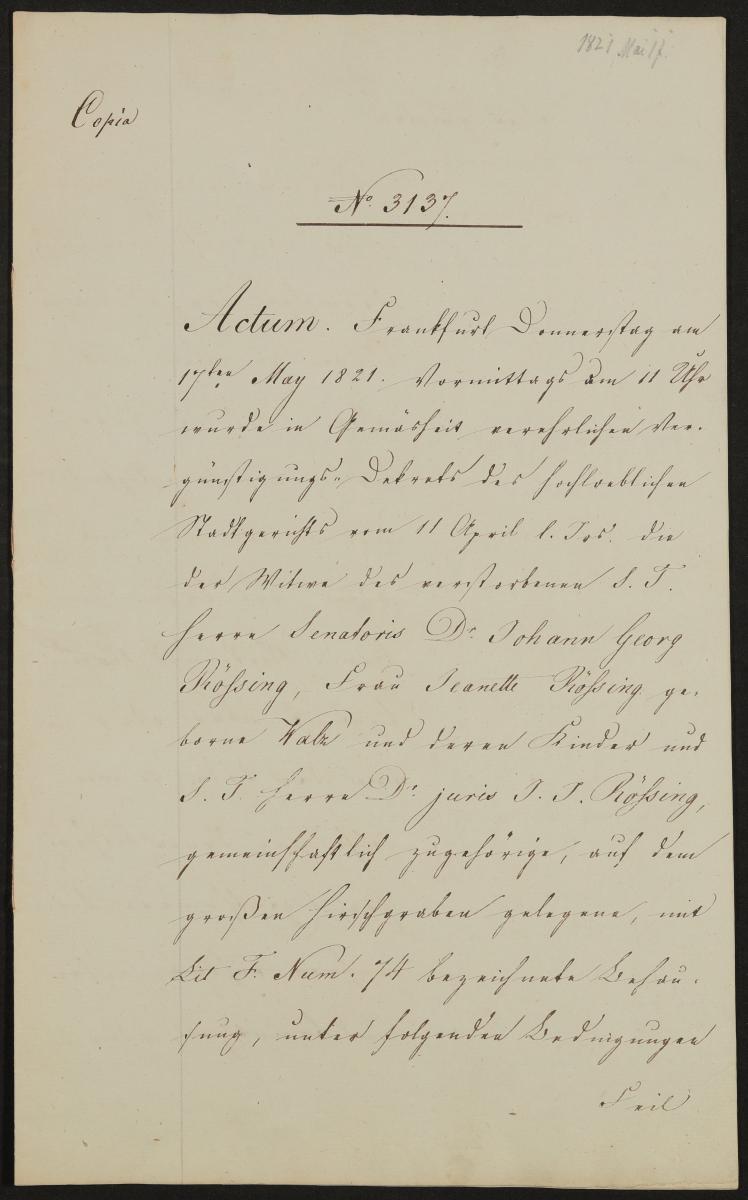 1821 Mai 17.
Copia
No. 3137.
Actum. Frankfurt Donnerstag am
17ten May 1821. Vormittags um 11 Uhr
wurde in Gemäsheit verehrlichen Ver-
günstigungs-Dekrets des hochloeblichen
Stadtgerichts vom 11 April l. Jrs. die
der Witwe des verstorbenen S. T.
Herrn Senatoris Dr. Johann Georg
Rössing, Frau Jeanette Rössing ge-
borne Walz und deren Kinder und
S. T. Herrn Dr. juris J. J. Rössing,
gemeinschaftlich zugehörige, auf dem
großen Hirschgraben gelegene, mit
Lit F. Num. 74 bezeichnete Behau-
sung, unter folgenden Bedingungen
Feil